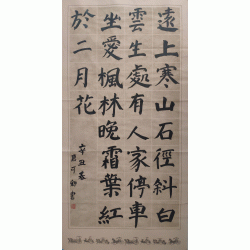 遠上寒山石徑斜白
雲生處有人家停車
坐愛楓林晚霜葉紅
於二月花
辛丑春